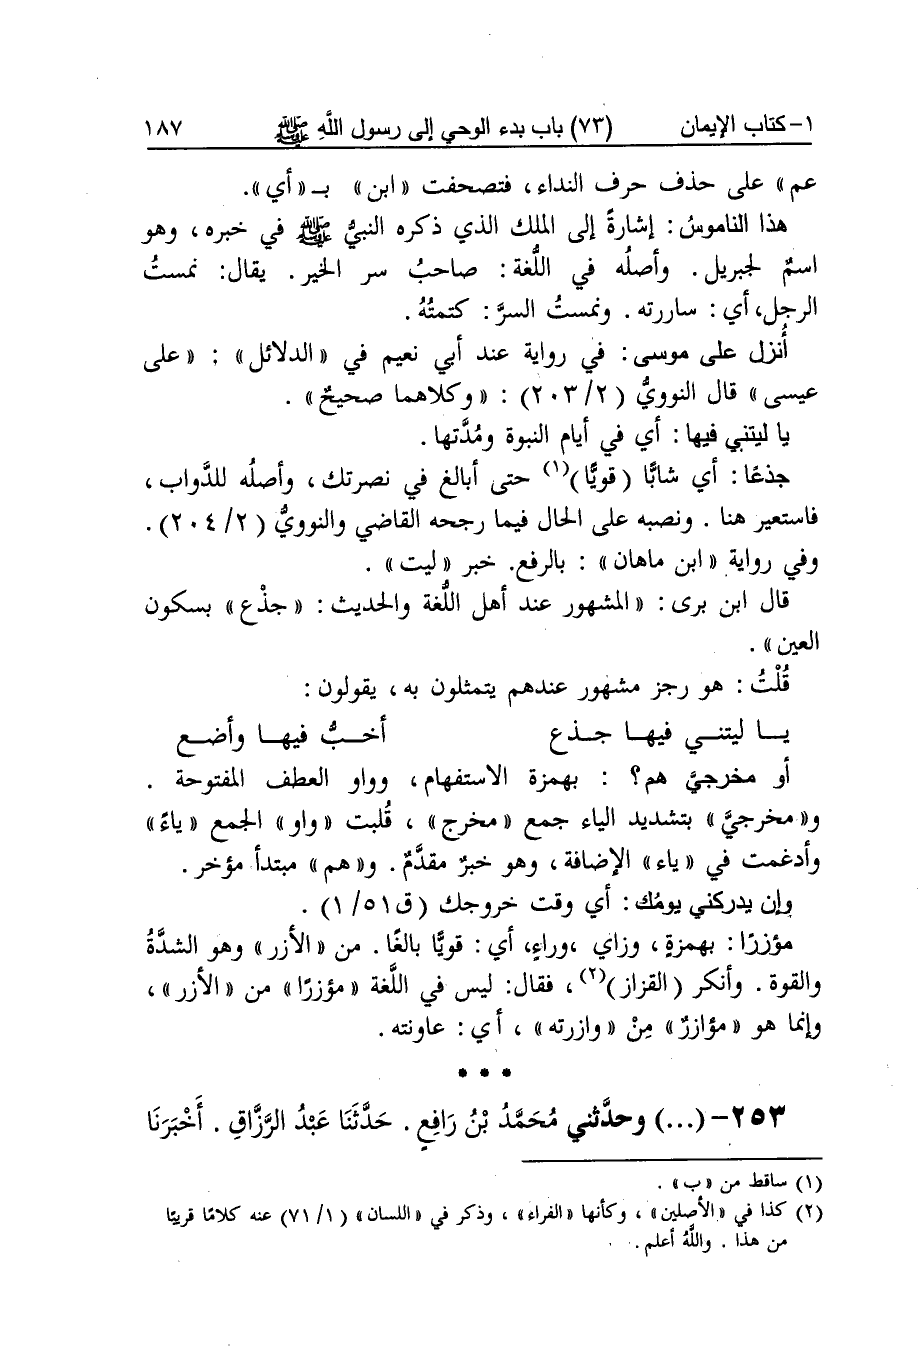 ١- كتاب الإيمان (٧٣) باب بدء الوحي إلى رسول اللَّهِ ﷺ ١٨٧
عم» على حذف حرف النداء، فتصحفت «ابن» بـ«أي».
هذا الناموسُ: إشارةً إلى الملك الذي ذكره النبيُّ ﷺ في خبره، وهو
اسمٌ لجبريل. وأصلُه في اللُّغة: صاحبُ سر الخير. يقال: نمستُ
الرجل، أي: ساررته. ونمستُ السرَّ: كتمتُهُ.
أُنزل على موسى: في رواية عند أبي نعيم في «الدلائل»: «على
عيسى» قال النوويُّ (٢/ ٢٠٣): «وكلاهما صحيحٌ».
يا ليتني فيها: أي في أيام النبوة ومُدَّتها.
جذعًا: أي شابًّا (قويًّا)(١) حتى أبالغ في نصرتك، وأصلُه للدَّواب،
فاستعير هنا. ونصبه على الحال فيما رجحه القاضي والنوويُّ (٢/ ٢٠٤).
وفي رواية «ابن ماهان»: بالرفع. خبر «ليت».
قال ابن برى: «المشهور عند أهل اللُّغة والحديث: «جذْع» بسكون
العين».
قُلْتُ: هو رجز مشهور عندهم يتمثلون به، يقولون:
يـا ليتنـي فيهـا جـذع أخـبُّ فيهـا وأضـع
أو مخرجيَّ هم؟ : بهمزة الاستفهام، وواو العطف المفتوحة.
و«مخرجيَّ» بتشديد الياء جمع «مخرج»، قُلبت «واو» الجمع «ياءً»
وأدغمت في «ياء» الإضافة، وهو خبرٌ مقدَّمٌ. و«هم» مبتدأ مؤخر.
وإن يدركني يومُك: أي وقت خروجك (ق٥١/ ١).
مؤزرًا: بهمزةٍ، وزاي ،وراءٍ، أي: قويًّا بالغًا. من «الأزر» وهو الشدَّةُ
والقوة. وأنكر (القزاز)(٢)، فقال: ليس في اللَّغة «مؤزرًا» من «الأزر»،
وإنما هو «مؤازرٌ» مِنْ «وازرته»، أي: عاونته.
* * *
٢٥٣- (...) وحدَّثني مُحَمَّدُ بْنُ رَافِعٍ. حَدَّثَنَا عَبْدُ الرَّزَّاقِ. أَخْبَرَنَا
(١) ساقط من «ب».
(٢) كذا في «الأصلين»، وكأنها «الفراء»، وذكر في «اللسان» (١/ ٧١) عنه كلامًا قريبًا
من هذا. واللَّهُ أعلم.